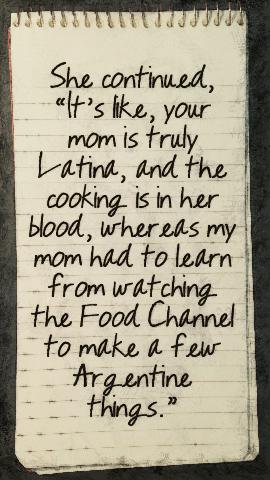 She continued,
“It’s like, your
mom is truly
Latina, and the
cooking is in her
blood, whereas my
mom had to learn
from watching
the Food Channel
to make a few
Argentine
things.”